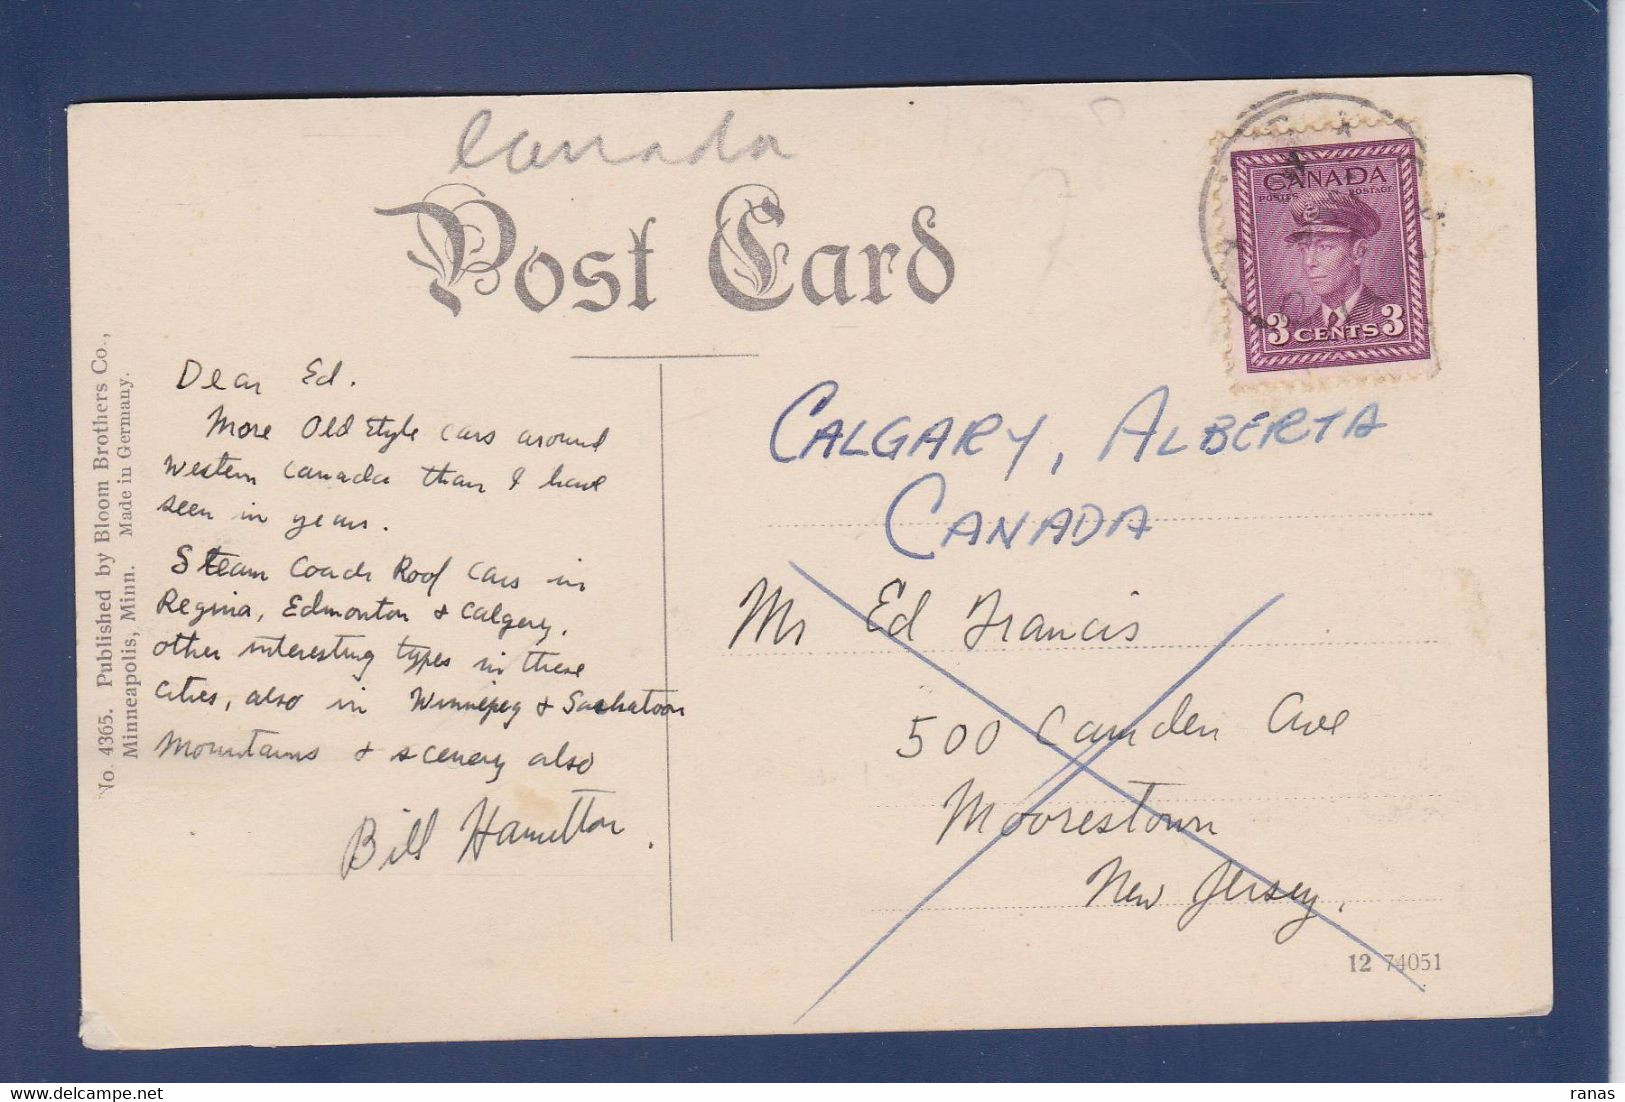 Canada
Post Card
CANADA
POSTES POSTAGE
3 CENTS 3
No. 4365. Published by Bloom Brothers Co.,
Minneapolis, Minn. Made in Germany.
Dear Ed.
More Old Style cars around
Western Canada than I have
seen in years.
Steam Coach Roof cars in
Regina, Edmonton & Calgary.
other interesting types in these
cities, also in Winnipeg & Saskatoon
Mountains & scenery also
Bill Hamilton.
CALGARY, ALBERTA
CANADA
Mr Ed Francis
500 Camden Ave
Moorestown
New Jersey.
12 74051
ranas